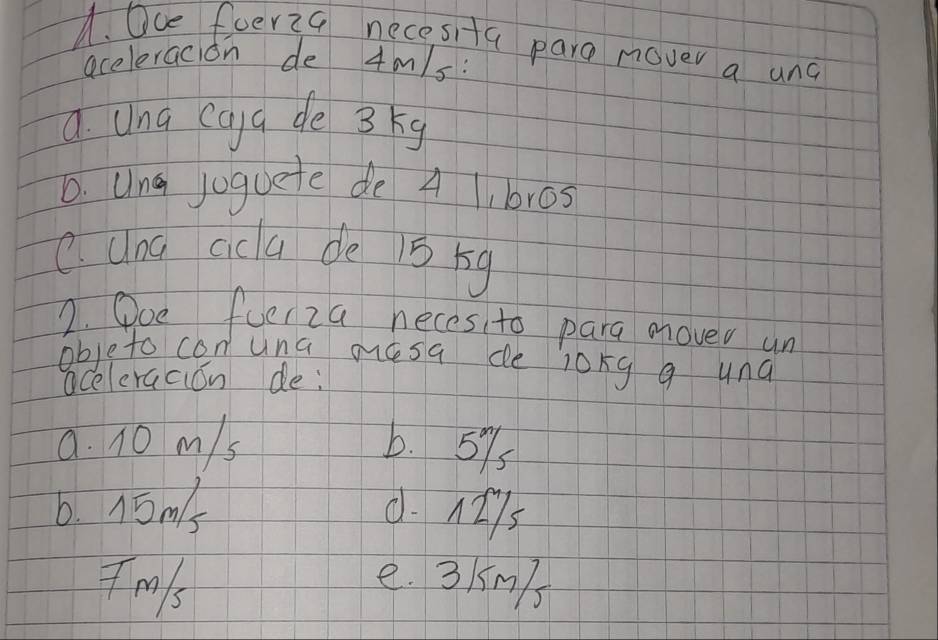 1. Que fuerza necesita para mover a una
aceleración de 4m/s:
a. Una caja de 3 kg
b. Una juguete de 4 libros
c. Una cicla de 15 kg
2. Que fuerza necesito para mover un
objeto con una masa de 10kg a una
aceleración de:
a. 10 m/s b. 5m/s
b. 15m/s d. 12m/s
7m/s e. 3km/s